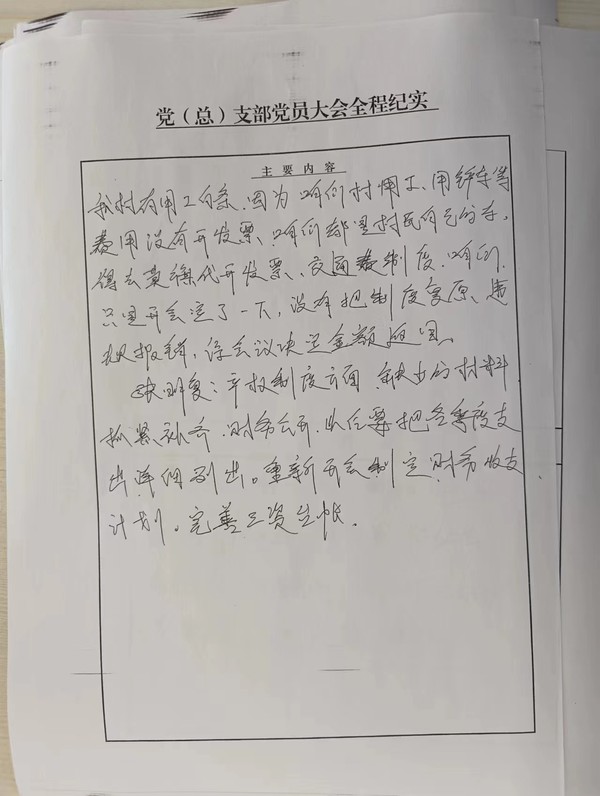 党（总）支部党员大会全程纪实
主 要 内 容
我村有用工白条，因为咱们村用工、用铲车等
费用没有开发票、咱们都是村民自己的车，
得去 代开发票、交通费制度、咱们
只是开会定了一下，没有把制度 、违
规报销，该会议决定金额退回。
 ：平权制度方面 缺少的材料
抓紧补齐，财务公开，以后要把各季度支
出详细列出。重新开会制定财务收支
计划。完善工资 帐。